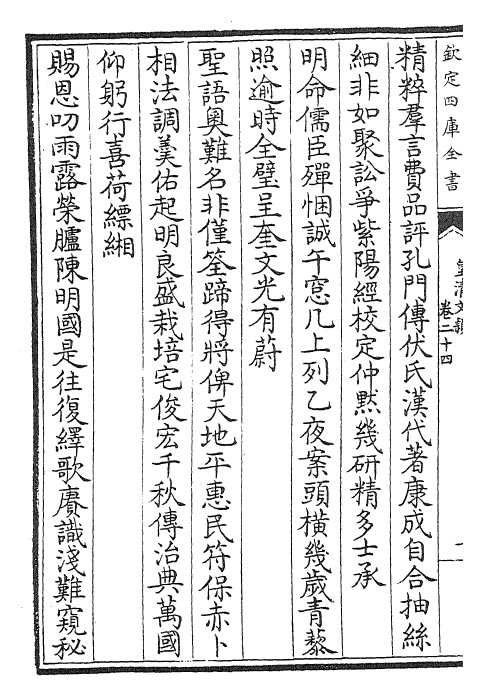 欽定四庫全書
皇清文穎
卷二十四
精粹羣言費品評孔門傳伏氏漢代著康成自合抽絲
細非如聚訟爭紫陽經校定仲黙幾研精多士承
明命儒臣殫悃誠午窓几上列乙夜案頭橫幾歲青藜
照逾時全璧呈奎文光有蔚
聖語奧難名非僅筌蹄得將俾天地平惠民符保赤卜
相法調羹佑起明良盛栽培宅俊宏千秋傳治典萬國
仰躬行喜荷縹緗
賜恩叨雨露榮臚陳明國是往復繹歌賡識淺難窺秘